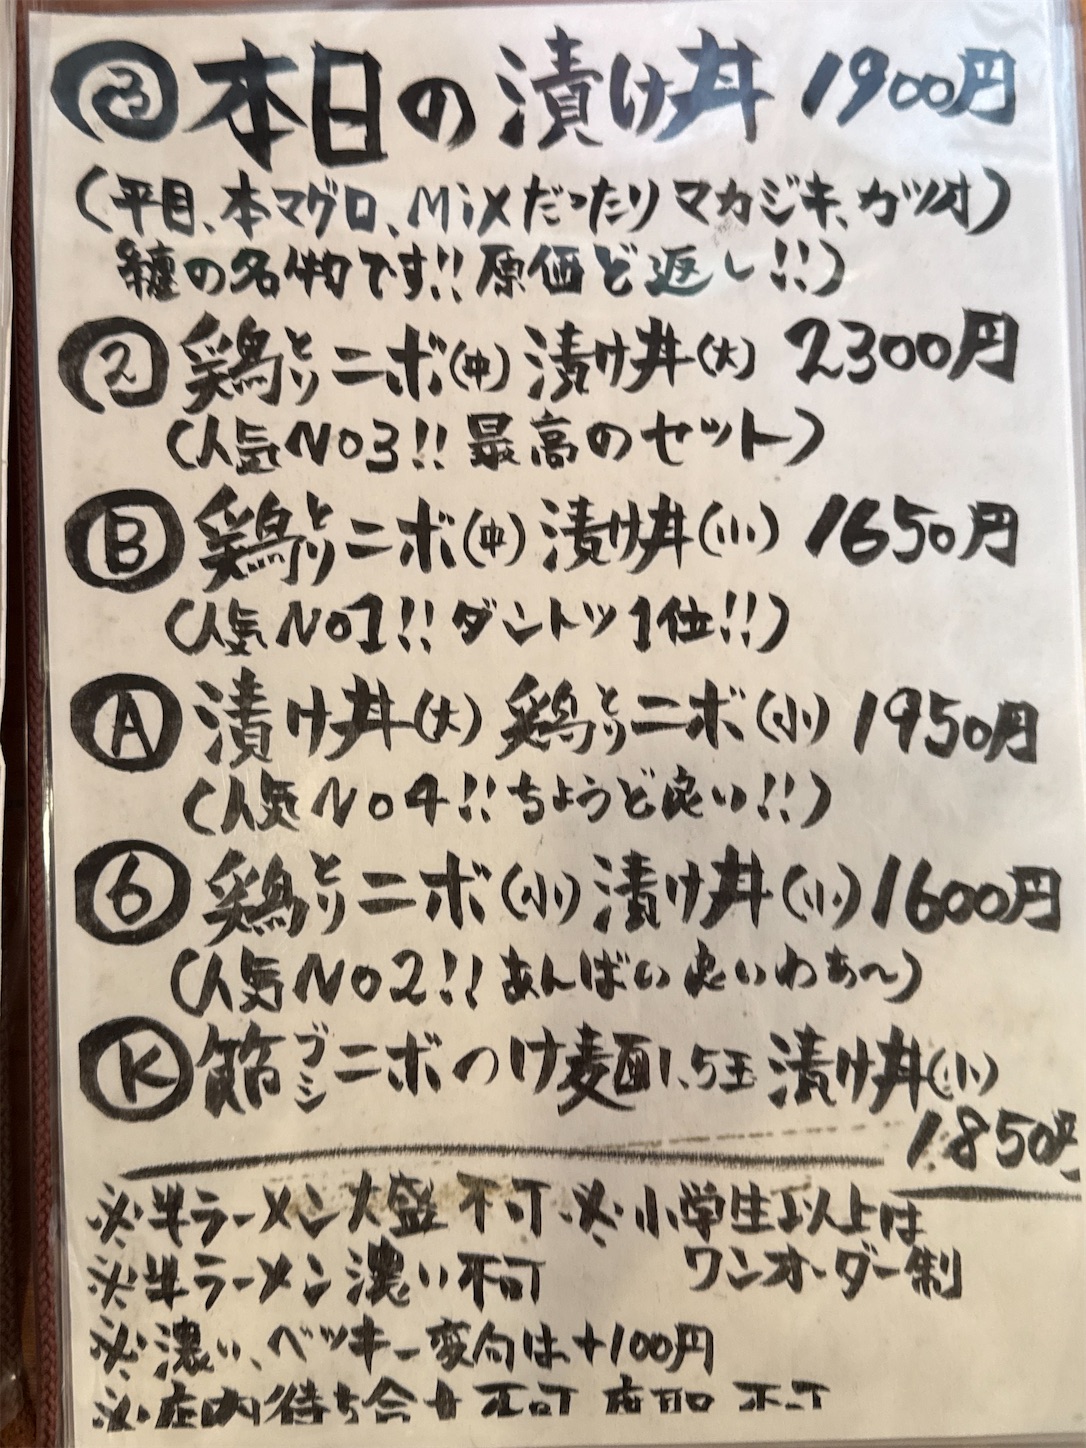 ③ 本日の漬け丼 1900円
(平目、本マグロ、Mixだったりマカジキ、カツオ)
纏の名物です!!原価ど返し!!)
② 鶏とりニボ(中) 漬け丼(大) 2300円
(人気No3!! 最高のセット)
Ⓑ 鶏とりニボ(中) 漬け丼(小) 1650円
(人気No1!! ダントツ1位!!)
Ⓐ 漬け丼(大) 鶏とりニボ(小) 1950円
(人気No4!! ちょうど良い!!)
⑥ 鶏とりニボ(小) 漬け丼(小) 1600円
(人気No2!! あんばい良いわぁ〜)
Ⓚ 節ブシニボつけ麺1.5玉 漬け丼(小)
1850円
※半ラーメン大盛不可 ※小学生以上は
※半ラーメン濃い不可 ワンオーダー制
※濃い、ベッキー変向は+100円
※店内待ち合せ不可 不可